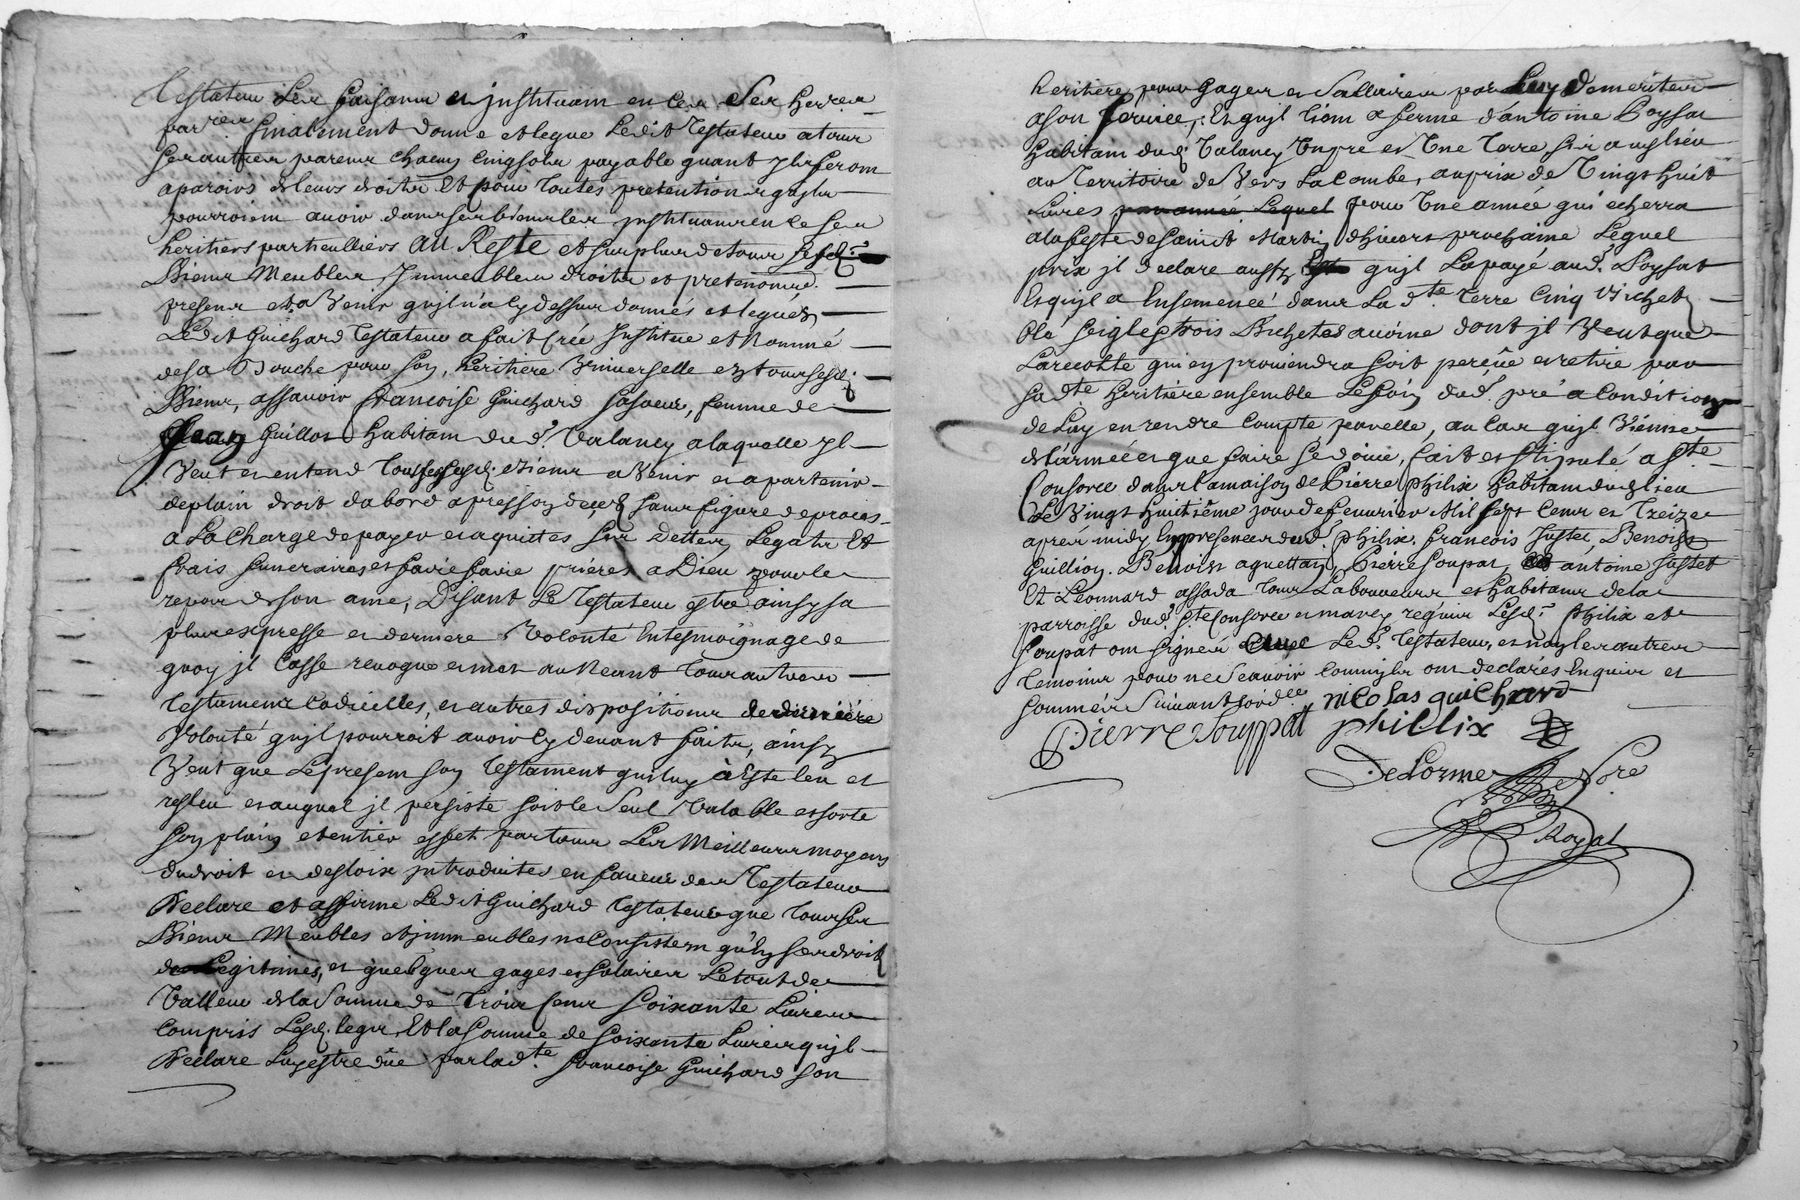 Testateur Les faisant et instituant en ce Ses herres
par.res finalement donne et legue Ledit Testateur a tous
Ses autres parens chacun cinq sols payable quant ils feront
aparoirs de leurs droits Et pour toutes pretentions quils
pourroient avoir dans ses biens les instituant en ce Ses
heritiers particulliers Au Reste et surplus de tous sesd.
Biens Meubles Immeubles droits et pretentions
presens et a Venir quil n'a cy dessus donnés et legués
Ledit Guichard Testateur a fait Crée Institue et Nommé
de sa Bouche pour son heritiere Universelle en tous sesd.
Biens, assavoir francoise Guichard sa soeur, femme de
Jean Guillot habitant dud. Valancy a laquelle yl
Veut et entend tous sesd. Biens a Venir et apartenir
de plain droit d'abord apres son decez sans figure de proces
a La Charge de payer et aquittes Ses Dettes, Legats Et
frais funeraires et faire faire prieres a Dieu pour le
repos de son ame, Disant Le Testateur estre ainsy sa
plus expresse et derniere Volonté En tesmoignage de
quoy jl Casse revoque et met au Neant tous autres
Testamens Codicilles, et autres dispositions de derniére
Volonté quil pourroit avoir cy devant faits, ainsy
Veut que Le present son Testament qui luy à Este leu et
releu et auquel jl persiste soit le Seul Valable et sorte
son plain et entier effet par tous Les Meilleurs moyens
du droit et des loix introduites en faveur des Testateurs
Declare et affirme Ledit Guichard Testateur que tous ses
Biens Meubles et immeubles ne Consistent qu'En ses droits
de Legitimes, et quelques gages et salaires Le tout de
Valleur de la Somme de Trois Cent Soixante Livres
Compris Lesd. legs, Et la Somme de Soixante Livres quil
Declare Luy estre düe par lad.te francoise Guichard son
heritiere pour Gages et Sallaires par Luy demerités
a son Service, Et quil tient a ferme d'antoine Poysat
habitant dud. Valancy Un pré et Une Terre sis audit lieu
au Territoire de Vers La Combe, au prix de Vingt huit
Livres par année Lequel pour Une année qui echerra
a la feste de Saint Martin d'hivers prochaine Lequel
prix jl declare aussy quil La payé aud. Poysat
Et quil a Ensemencé dans La d.te Terre Cinq Bichets
blé Seigle trois Bichetes avoine dont jl Veut que
La recolte qui en proviendra soit perçüe et retire par
Sad.te heritiere ensemble Le foin dud. pré a Condition
de Luy en rendre Compte par elle, au Cas quil Vienne
de L'armée et que faire se doive, fait et stipulé a S.te
Consorce dans la maison de Pierre philix habitant dud. lieu
Le Vingt huitiéme jour de fevrier Mil sept Cent et Treize
apres midy En presence dud. Philix. francois Justet, Benoist
Guillion. Benoist aguettan, Pierre Soupat, antoine Justet
Et Leonnard assada tous Laboureurs et habitans de la
parroisse dud. S.te Consorce et marcy requis Lesd. Philix et
Soupat ont Signé avec Led. Testateur, et non les autres
temoins pour ne Scavoir Comme ils ont declarés Enquis et
sommés Suivant L'ord.ce nicolas guichard
Pierre Souppat phillix
DeLorme No.re
Royal